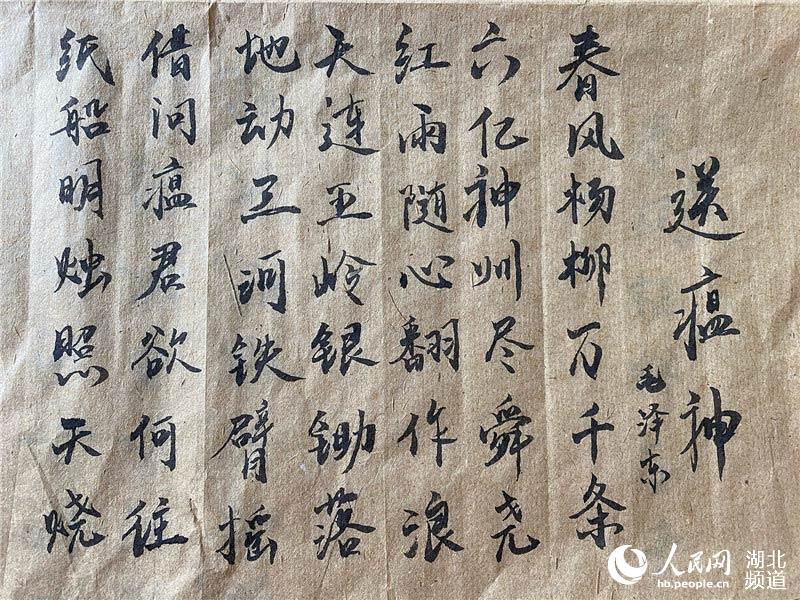 送瘟神
毛泽东
春风杨柳万千条
六亿神州尽舜尧
红雨随心翻作浪
天连五岭银锄落
地动三河铁臂摇
借问瘟君欲何往
纸船明烛照天烧
人民网
hb.people.cn
湖北
频道